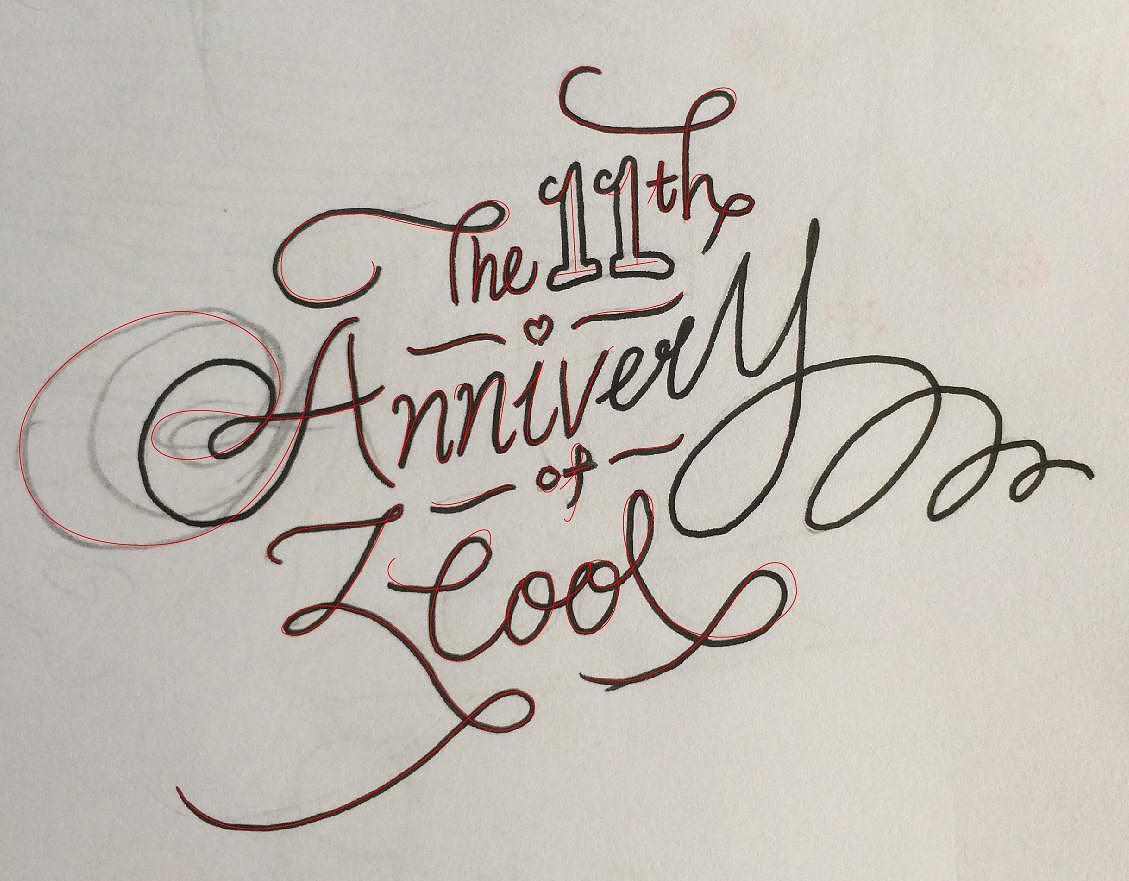 The 11th
Annivery
of
ZCool